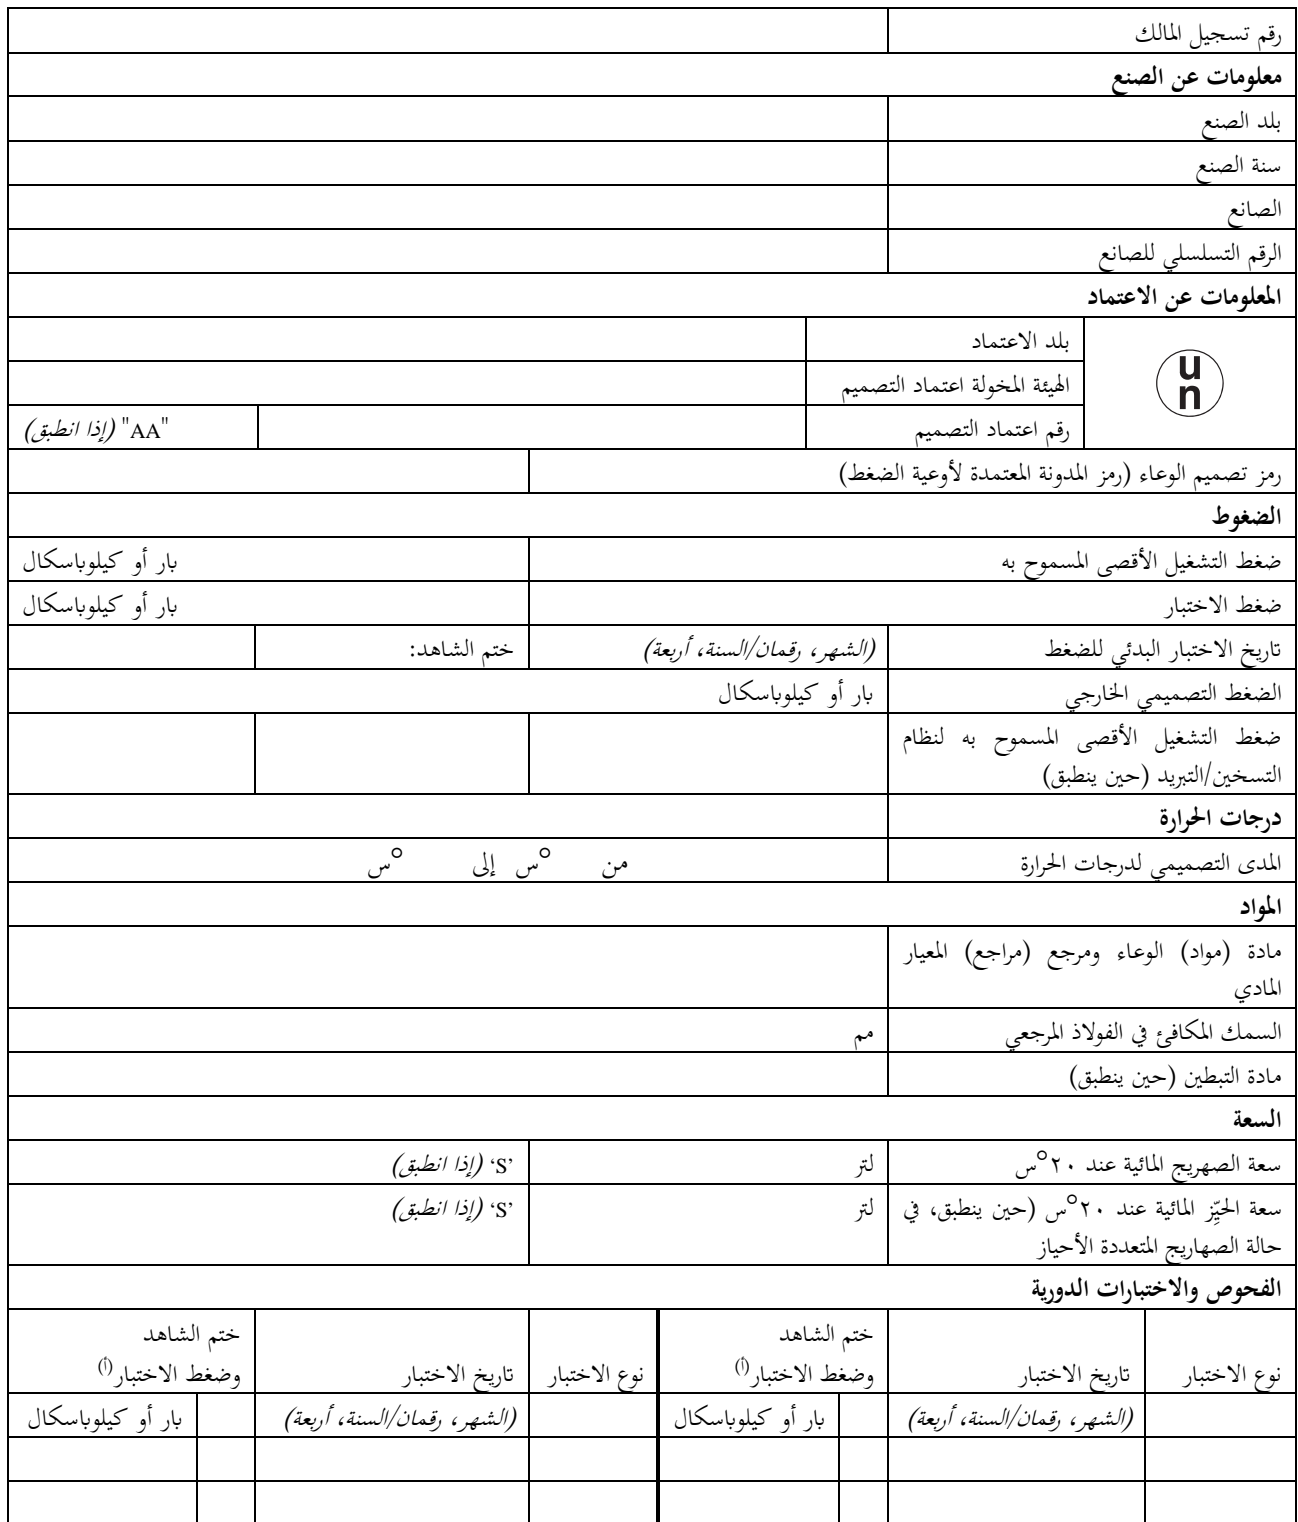 رقم تسجيل المالك
معلومات عن الصنع
بلد الصنع
سنة الصنع
الصانع
الرقم التسلسلي للصانع
المعلومات عن الاعتماد
un
بلد الاعتماد
الهيئة المخولة اعتماد التصميم
رقم اعتماد التصميم "AA" (إذا انطبق)
رمز تصميم الوعاء (رمز المدونة المعتمدة لأوعية الضغط)
الضغوط
ضغط التشغيل الأقصى المسموح به بار أو كيلوباسكال
ضغط الاختبار بار أو كيلوباسكال
تاريخ الاختبار البدئي للضغط (الشهر، رقمان/السنة، أربعة) ختم الشاهد:
الضغط التصميمي الخارجي بار أو كيلوباسكال
ضغط التشغيل الأقصى المسموح به لنظام
التسخين/التبريد (حين ينطبق)
درجات الحرارة
المدى التصميمي لدرجات الحرارة من °س إلى °س
المواد
مادة (مواد) الوعاء ومرجع (مراجع) المعيار
المادي
السمك المكافئ في الفولاذ المرجعي مم
مادة التبطين (حين ينطبق)
السعة
سعة الصهريج المائية عند ٢٠°س لتر ‘S’ (إذا انطبق)
سعة الحيِّز المائية عند ٢٠°س (حين ينطبق، في لتر ‘S’ (إذا انطبق)
حالة الصهاريج المتعددة الأحياز
الفحوص والاختبارات الدورية
ختم الشاهد ختم الشاهد
نوع الاختبار تاريخ الاختبار وضغط الاختبار(أ) نوع الاختبار تاريخ الاختبار وضغط الاختبار(أ)
(الشهر، رقمان/السنة، أربعة) بار أو كيلوباسكال (الشهر، رقمان/السنة، أربعة) بار أو كيلوباسكال